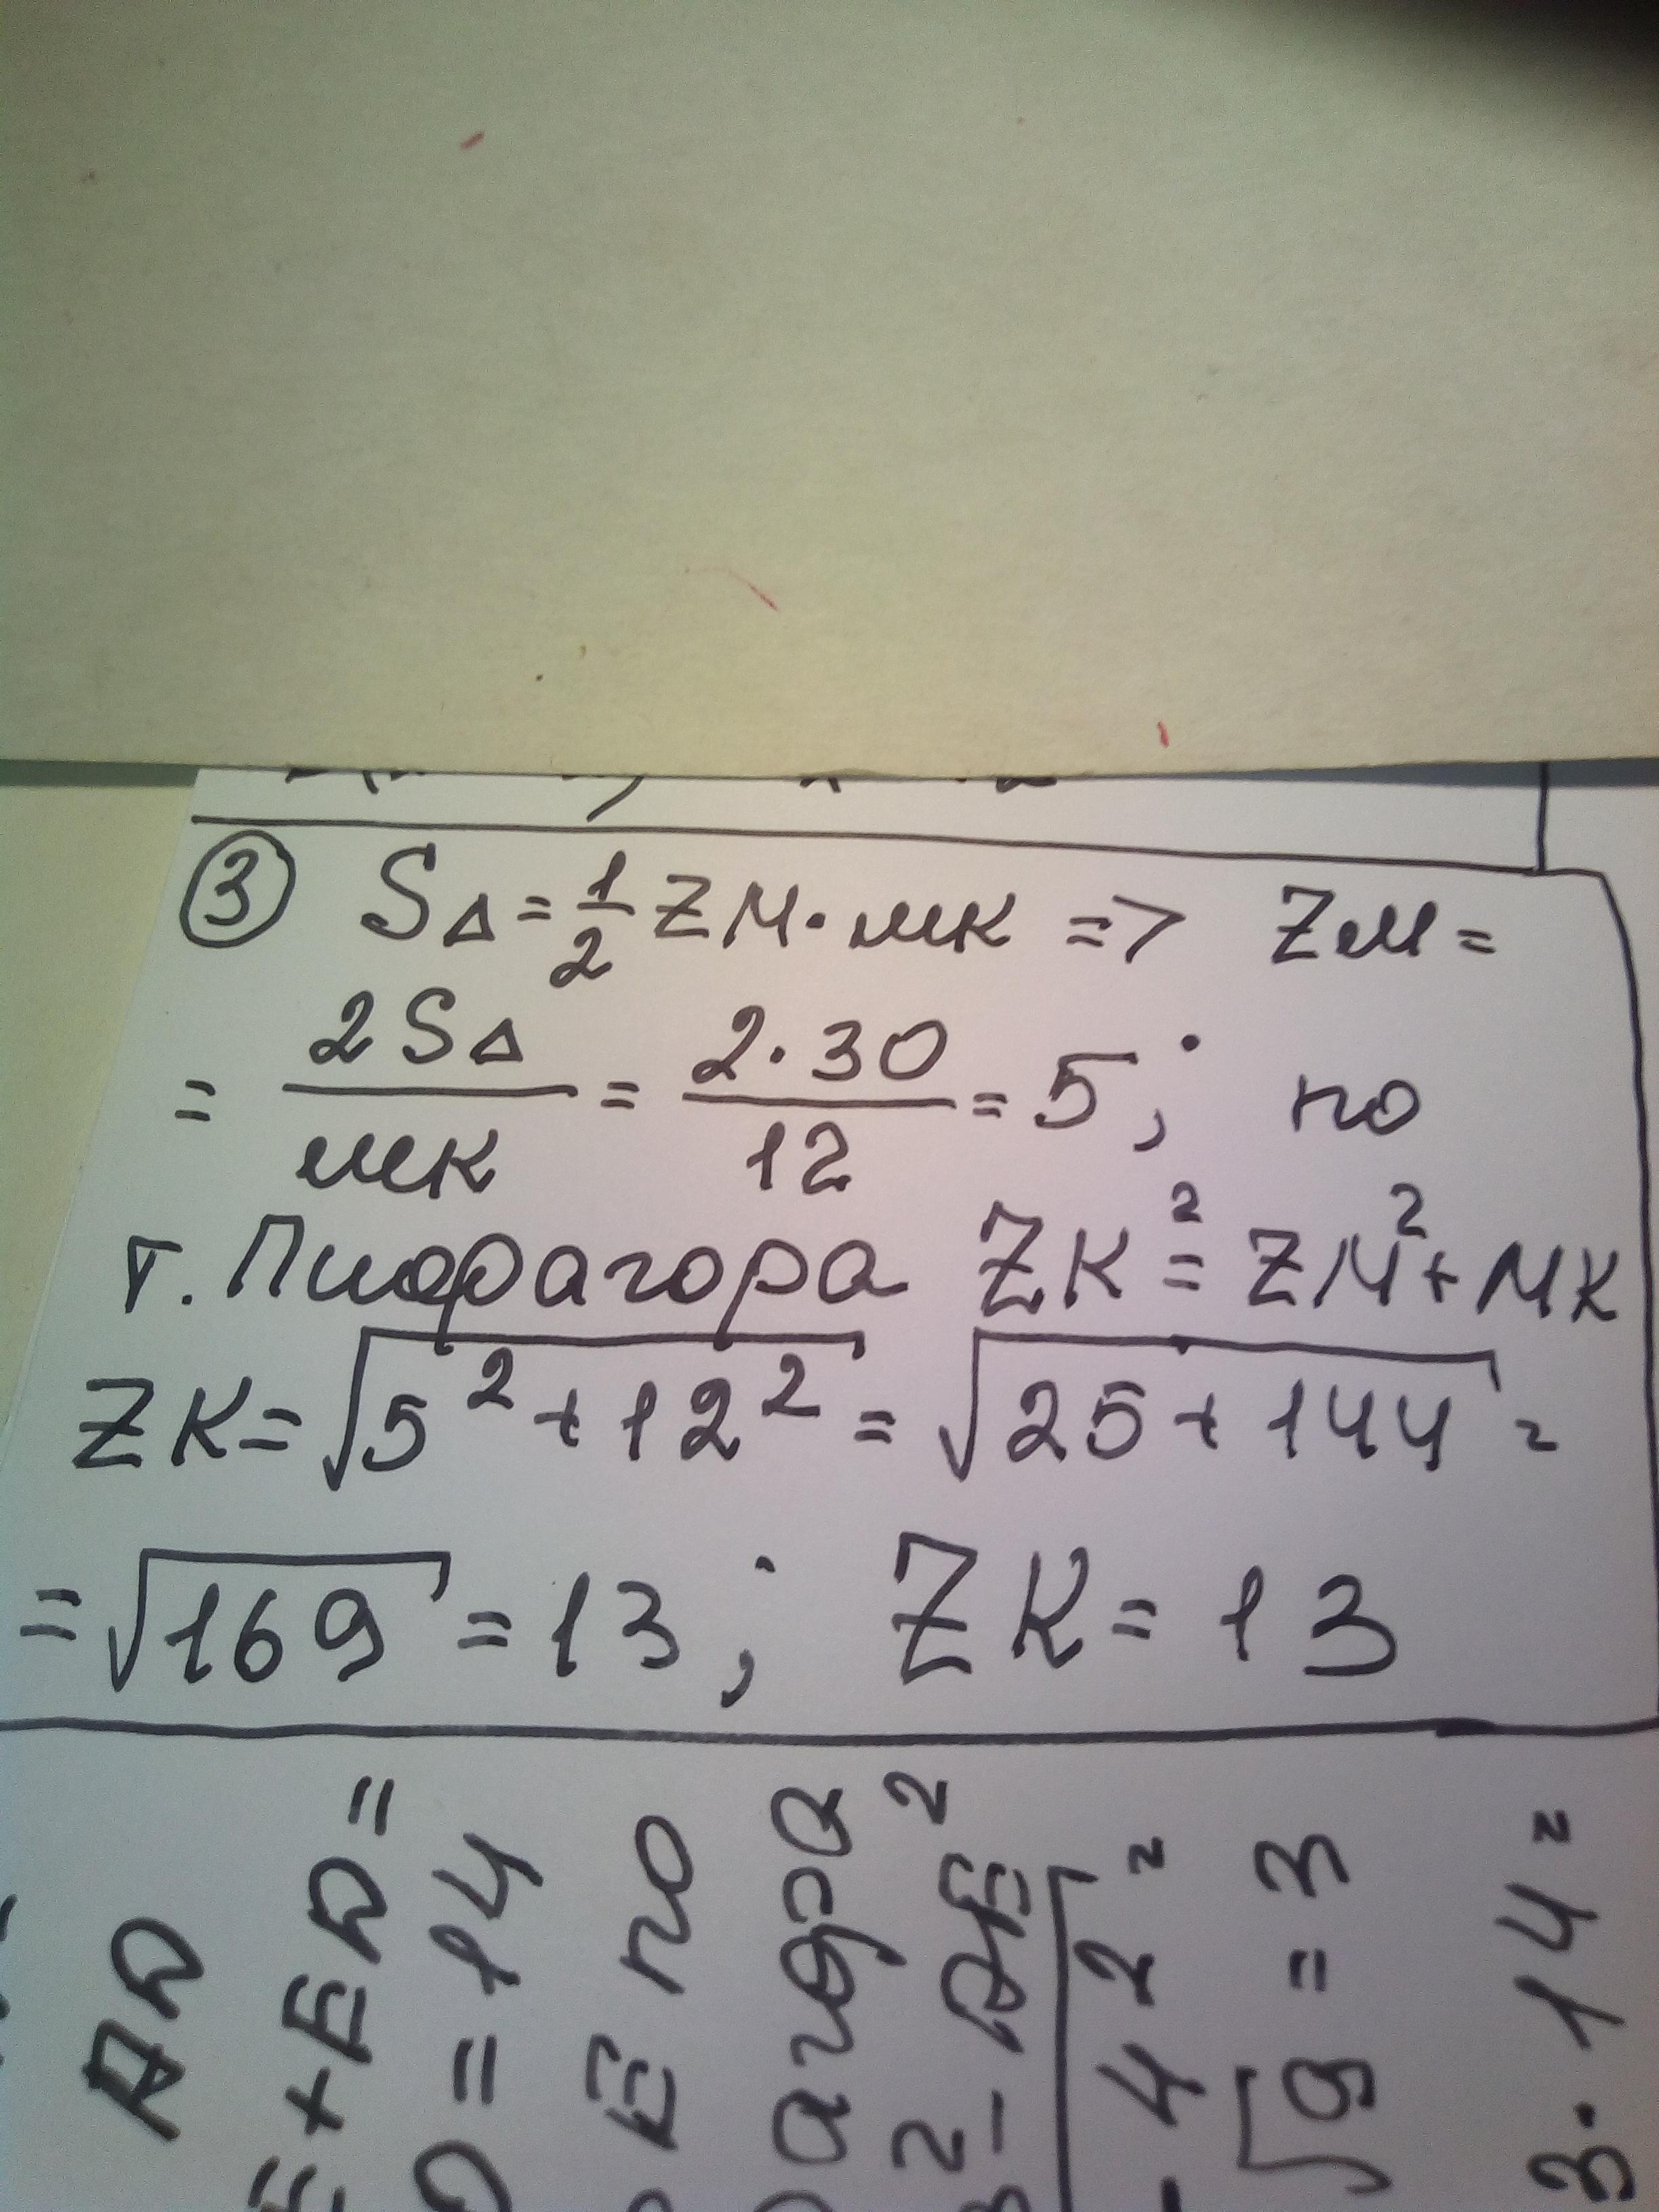 ③ S△ = 1/2 ZM · MK => ZM =
= 2S△/MK = 2·30/12 = 5; по
т. Пифагора ZK² = ZM² + MK
ZK = √(5² + 12²) = √(25 + 144) =
= √169 = 13; ZK = 13
AD
E + ED =
= 14
E по
агора
2 - AE²
4² =
√9 = 3
3 · 14 =